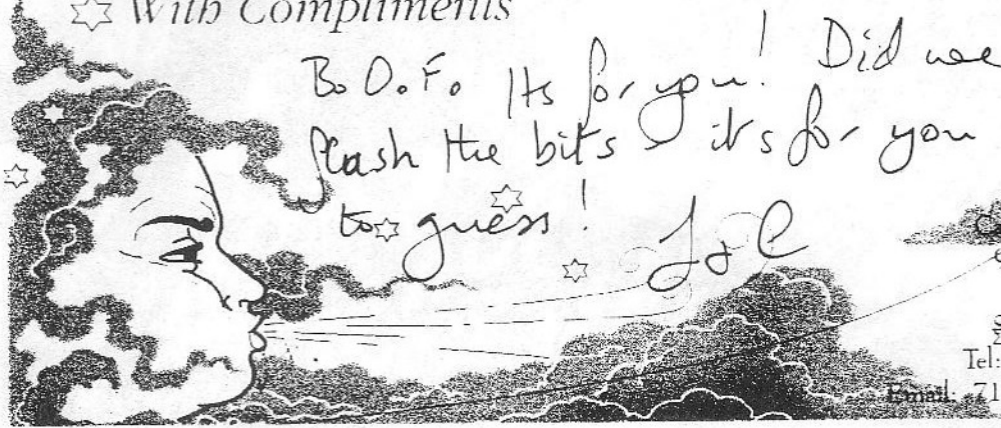 With Compliments
B.O.F. Its for you! Did we
flash the bits - it's for you
to guess!
J & C
Tel:
Email: 71